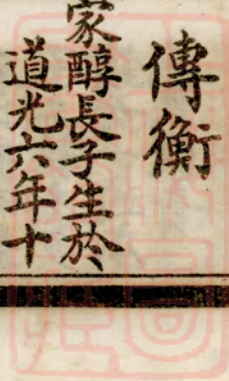 傳衡
家醇長子生於
道光六年十